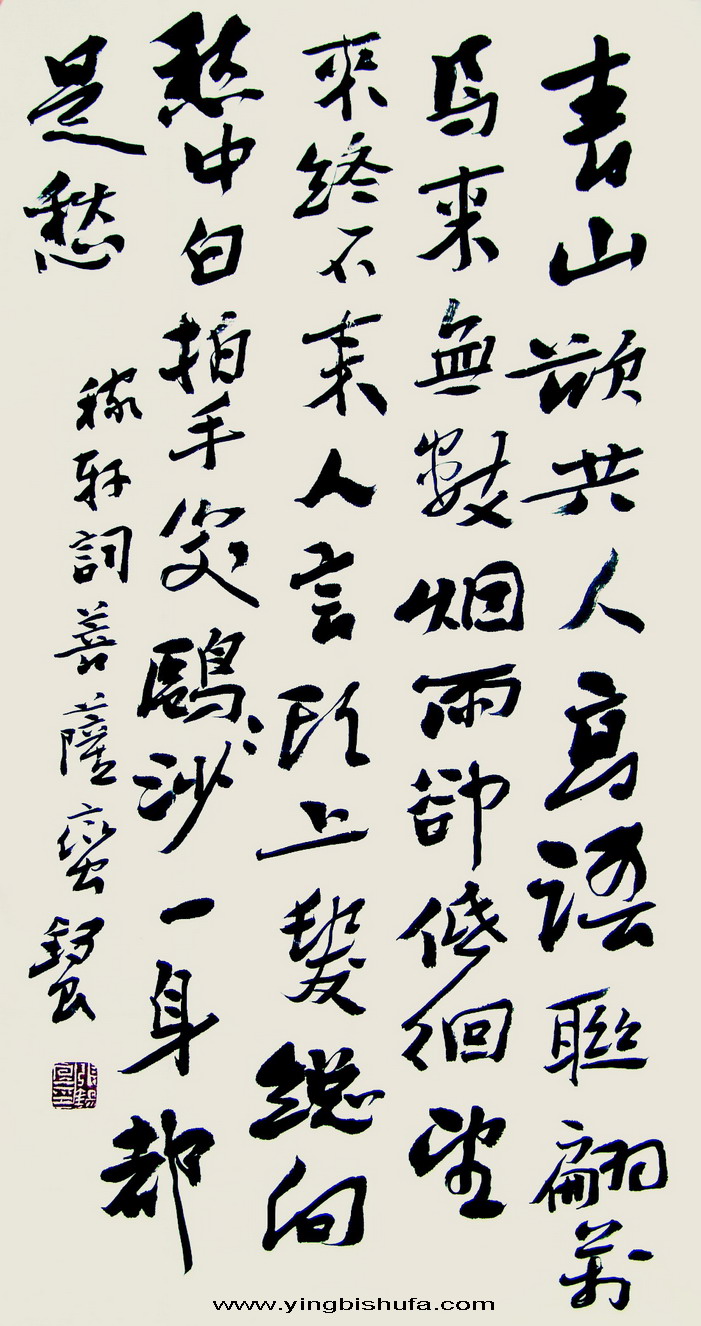 青山欲共人高語聯翩萬
馬來無數烟雨卻低徊望
來終不來人言頭上髮總向
愁中白拍手笑鷗沙一身都
是愁
稼軒詞菩薩蠻錫良
張錫良印
www.yingbishufa.com